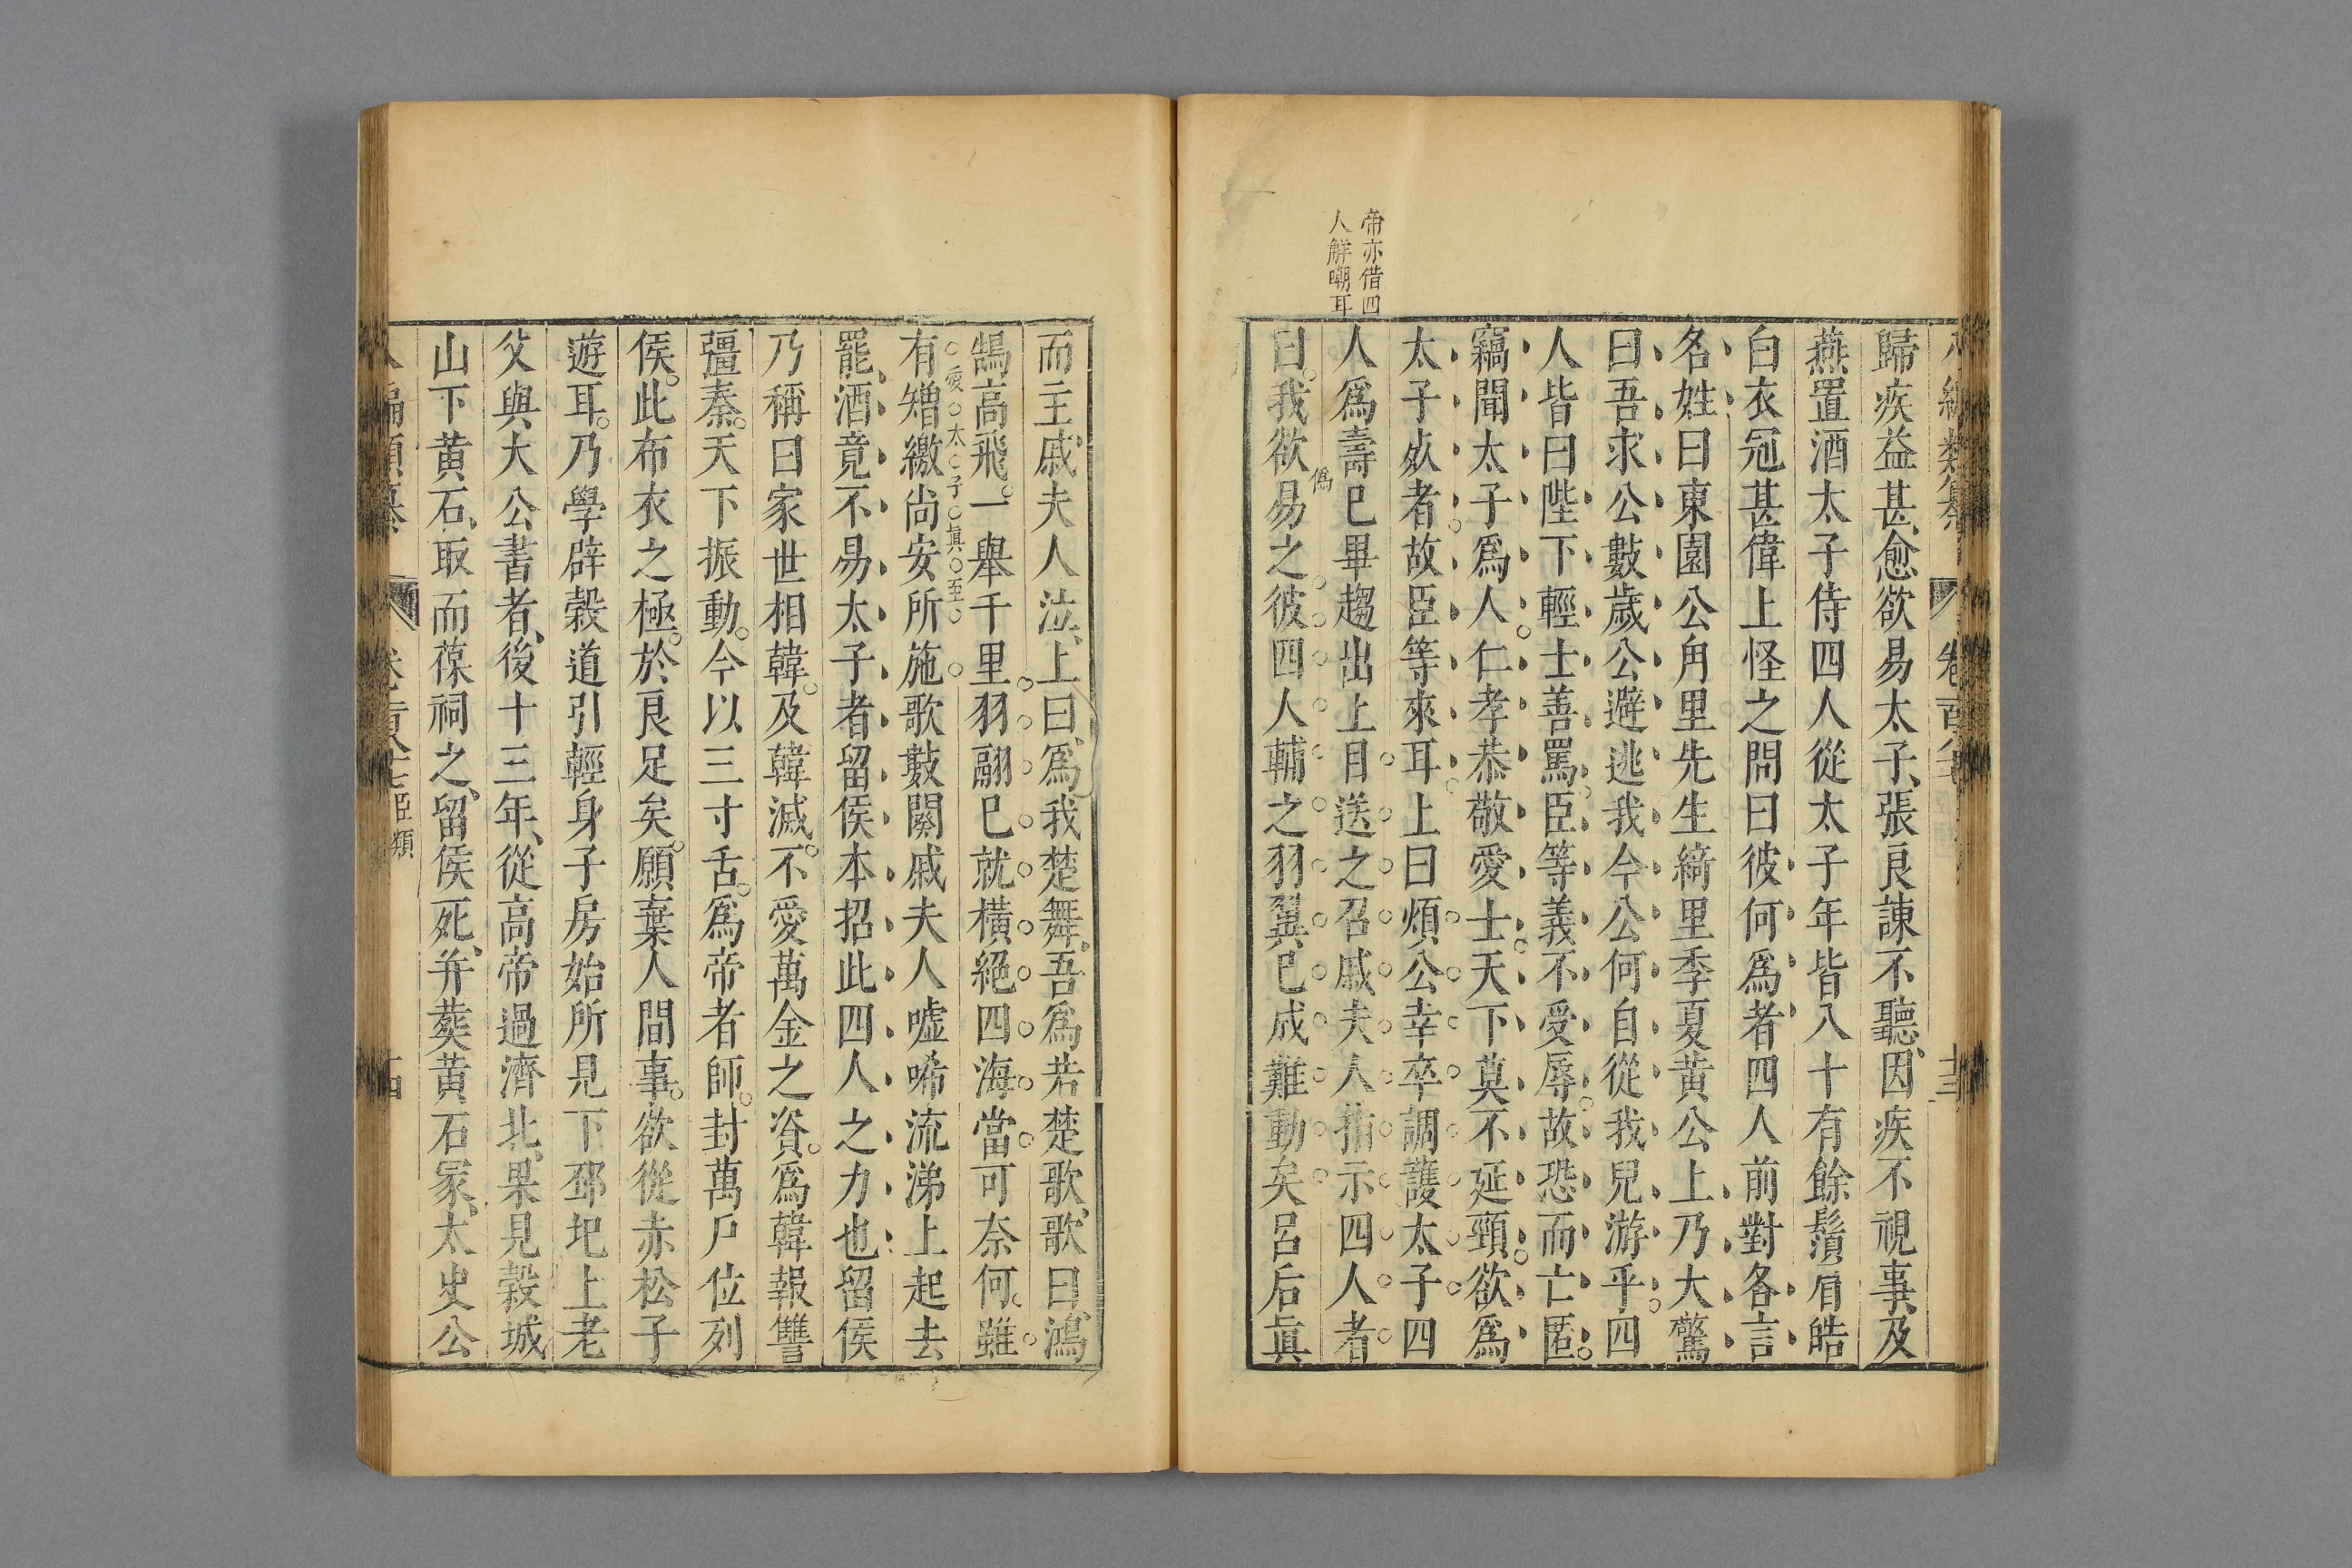 帝亦借四
人解嘲耳
歸疾益甚愈欲易太子張良諫不聽因疾不視事及
燕置酒太子侍四人從太子年皆八十有餘鬚眉皓
白衣冠甚偉上怪之問曰彼何爲者四人前對各言
名姓曰東園公甪里先生綺里季夏黃公上乃大驚
曰吾求公數歲公避逃我今公何自從我兒游乎四
人皆曰陛下輕士善罵臣等義不受辱故恐而亡匿
竊聞太子爲人仁孝恭敬愛士天下莫不延頸欲爲
太子死者故臣等來耳上曰煩公幸卒調護太子四
人爲壽已畢趨出上目送之召戚夫人指示四人者
僞
曰我欲易之彼四人輔之羽翼已成難動矣呂后眞
而主戚夫人泣上曰爲我楚舞吾爲若楚歌歌曰鴻
鵠高飛一舉千里羽翮已就橫絕四海當可奈何雖
愛太子眞至
有矰繳尚安所施歌數闋戚夫人噓唏流涕上起去
罷酒竟不易太子者留侯本招此四人之力也留侯
乃稱曰家世相韓及韓滅不愛萬金之資爲韓報讐
彊秦天下振動今以三寸舌爲帝者師封萬戶位列
侯此布衣之極於良足矣願棄人間事欲從赤松子
遊耳乃學辟穀道引輕身子房始所見下邳圯上老
父與大公書者後十三年從高帝過濟北果見穀城
山下黃石取而葆祠之留侯死并葬黃石冢太史公